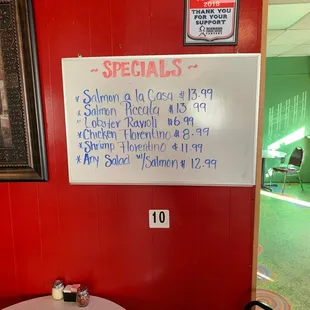 2018
THANK YOU
FOR YOUR
SUPPORT
~ SPECIALS ~
* Salmon a la Casa $ 13.99
* Salmon Piccata $ 13.99
" Lobster Ravioli $6.99
* Chicken Florentino $ 8.99
* Shrimp Florentino $ 11.99
* Any Salad w/Salmon $ 12.99
10